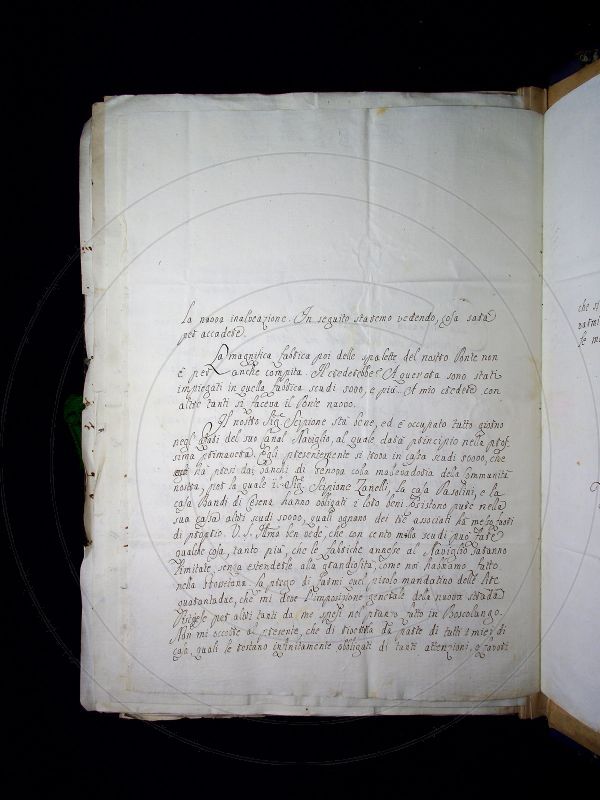 la nuova inalveazione. In seguito staremo vedendo, cosa sarà
per accadere.
La magnifica fabbrica poi delle spalette del nostro Ponte non
è per anche compita. Il crederebbe? A quest'ora sono stati
impiegati in quella fabbrica scudi 5000, e più. A mio credere con
altre tanti si faceva il Ponte nuovo.
Il nostro Sig. Scipione stà bene, ed è occupato tutto giorno
negl'affari del suo Canal Naviglio, al quale darà principio nella pros
sima primavera. Egli presentemente si trova in cassa scudi 50000, che
ha presi dai banchi di Genova colla malevadoria della Communità
nostra, per la quale il Sig. Scipione Zanelli, la casa Pasolini, e la
casa Bandi di Cesena hanno obligati i loro beni. Esistono pure nella
sua cassa altri scudi 50000, quali ognuno dei tre associati ha messo fuori
di proprio. V. S. Illma ben vede, che con cento milla scudi può fare
qualche cosa, tanto più, che le fabbriche annesse al Naviglio saranno
limitate, senza estendersi alla grandiosità, come noi habbiamo fatto
nella La prego di farmi quel picolo mandatino delle lire
quarantadue, che mi deve l'imposizione generale della nuova strada
per altri tanti da me spesi nel pranzo fatto in Boscolungo.
Non mi occorre al presente, che di riverirla da parte di tutti i miei di
casa, quali le restano infinitamente obbligati di tanti attenzioni, e favori